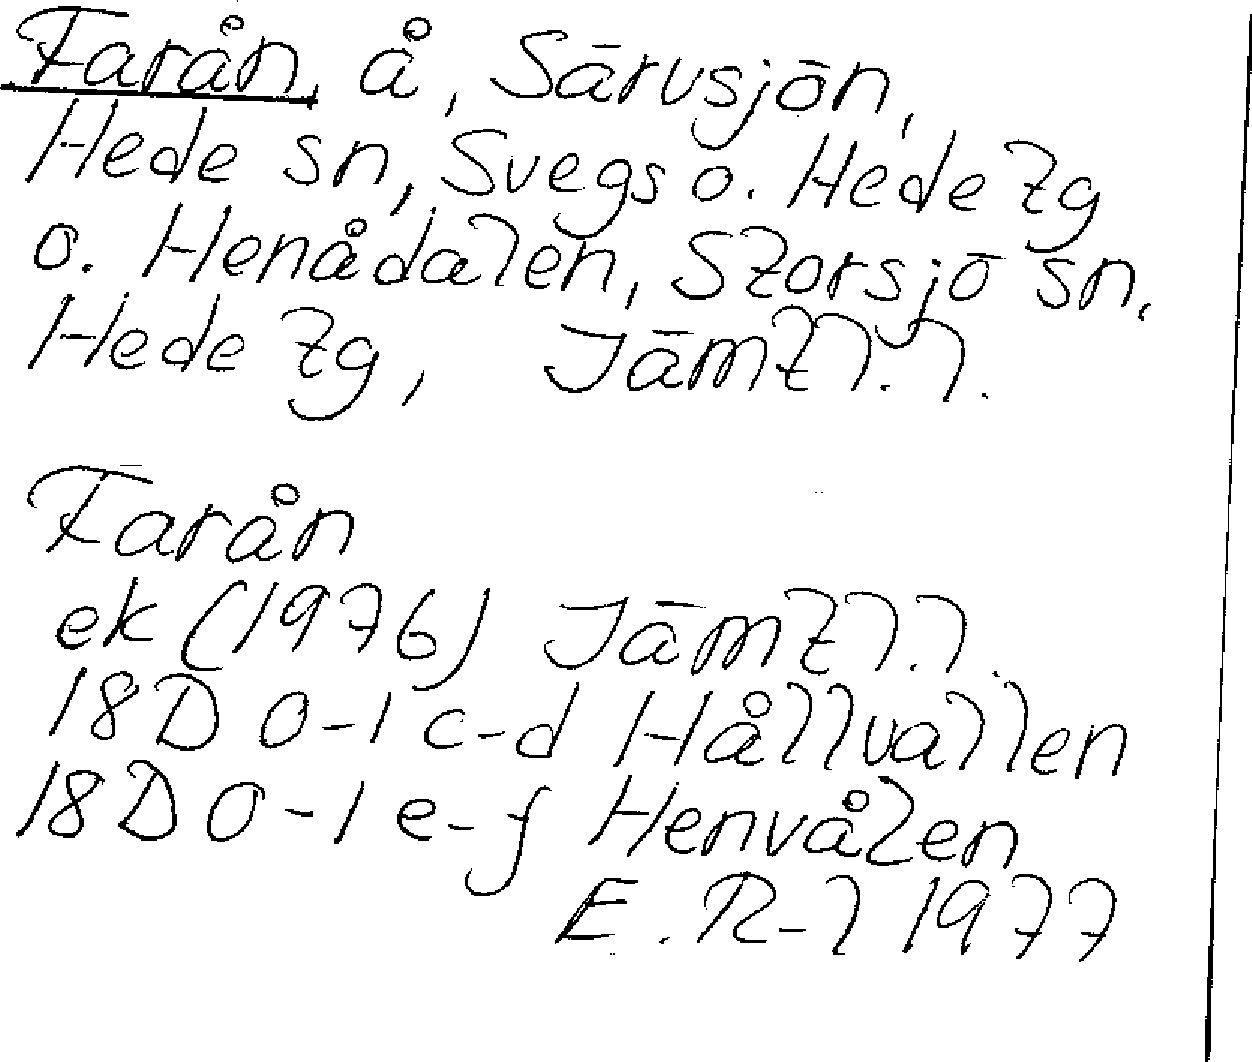 Farån, å, Särvsjön,
Hede sn, Svegs o. Hede tg
o. Henådalen, Storsjö sn,
Hede tg, Jämtl. l.
Farån
ek (1976) Jämtl. l.
18D 0-1 c-d Hållvallen
18D 0-1 e-f Henvålen
E. R-l 1977